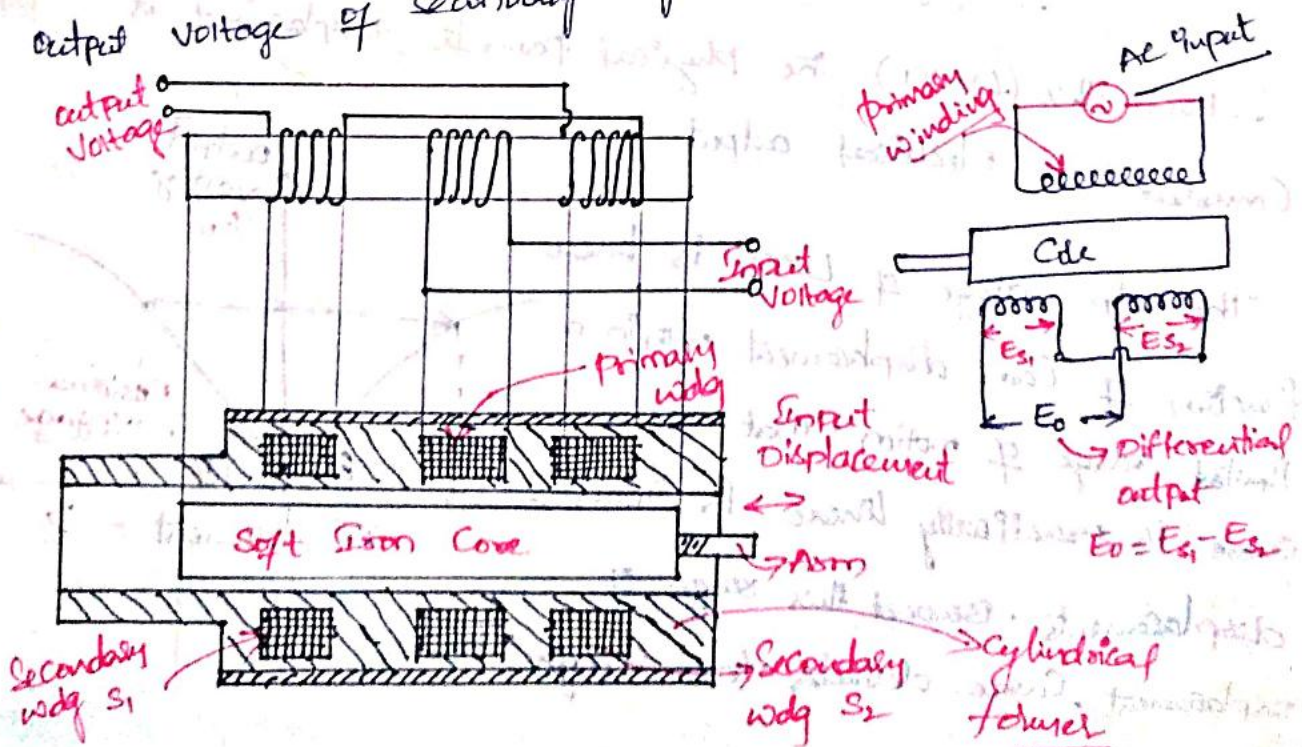 output voltage of secondary
output
voltage
Input
Voltage
primary
wdg
Input
Displacement
Soft Iron Core
Arm
Secondary
wdg S1
Secondary
wdg S2
Cylindrical
former
AC input
primary
winding
~
Core
ES1
ES2
E0
Differential
output
E0 = ES1 - ES2